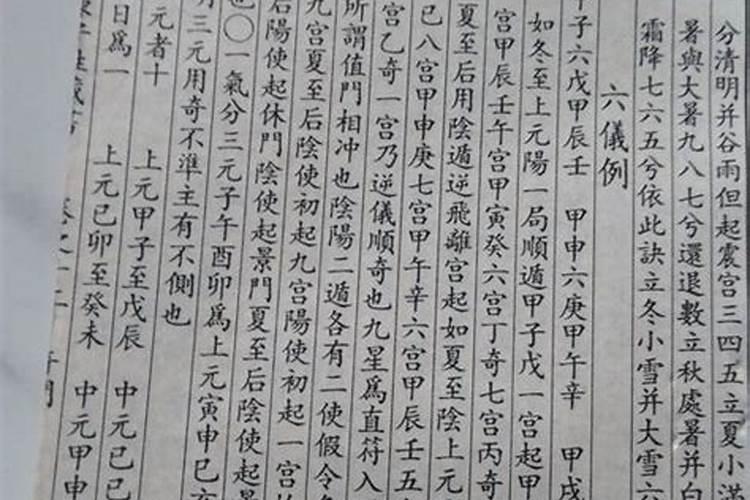 分清明并谷雨但起震宫三四五立夏小满
暑與大暑九八七兮還退數立秋處暑并白
霜降七六五兮依此訣立冬小雪并大雪六
六儀例
子六戊甲辰壬 甲申六庚甲午辛 甲戌
如冬至上元陽一局順遁甲子戊一宫起甲
宫甲辰壬午宫甲寅癸六宫丁奇七宫丙奇
夏至后用陰遁逆飛離宫起如夏至陰上元
巳八宫甲申庚七宫甲午辛六宫甲辰壬五
宫乙奇一宫乃逆儀順奇也九星爲直符入
所謂值門相冲也陰陽二遁各有二使假令
九宫夏至后陰使初起九宫陽使初起一宫
后陽使起休門陰使起景門夏至后陰使起景
也〇一氣分三元子午酉卯爲上元寅申巳亥
三元用奇不準主有不側也
元者十 上元甲子至戊辰 中元己巳
日爲一 上元己卯至癸未 中元甲申